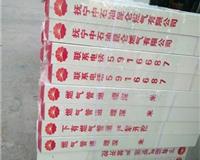 抚宁中石油昆仑燃气有限公司
抚宁中石油昆仑燃气有限公司
联系电话5916687
联系电话5916687
燃气管道 埋深 米
燃气管道 埋深 米
下有燃气管道 严禁开挖
燃气管道 埋深 米